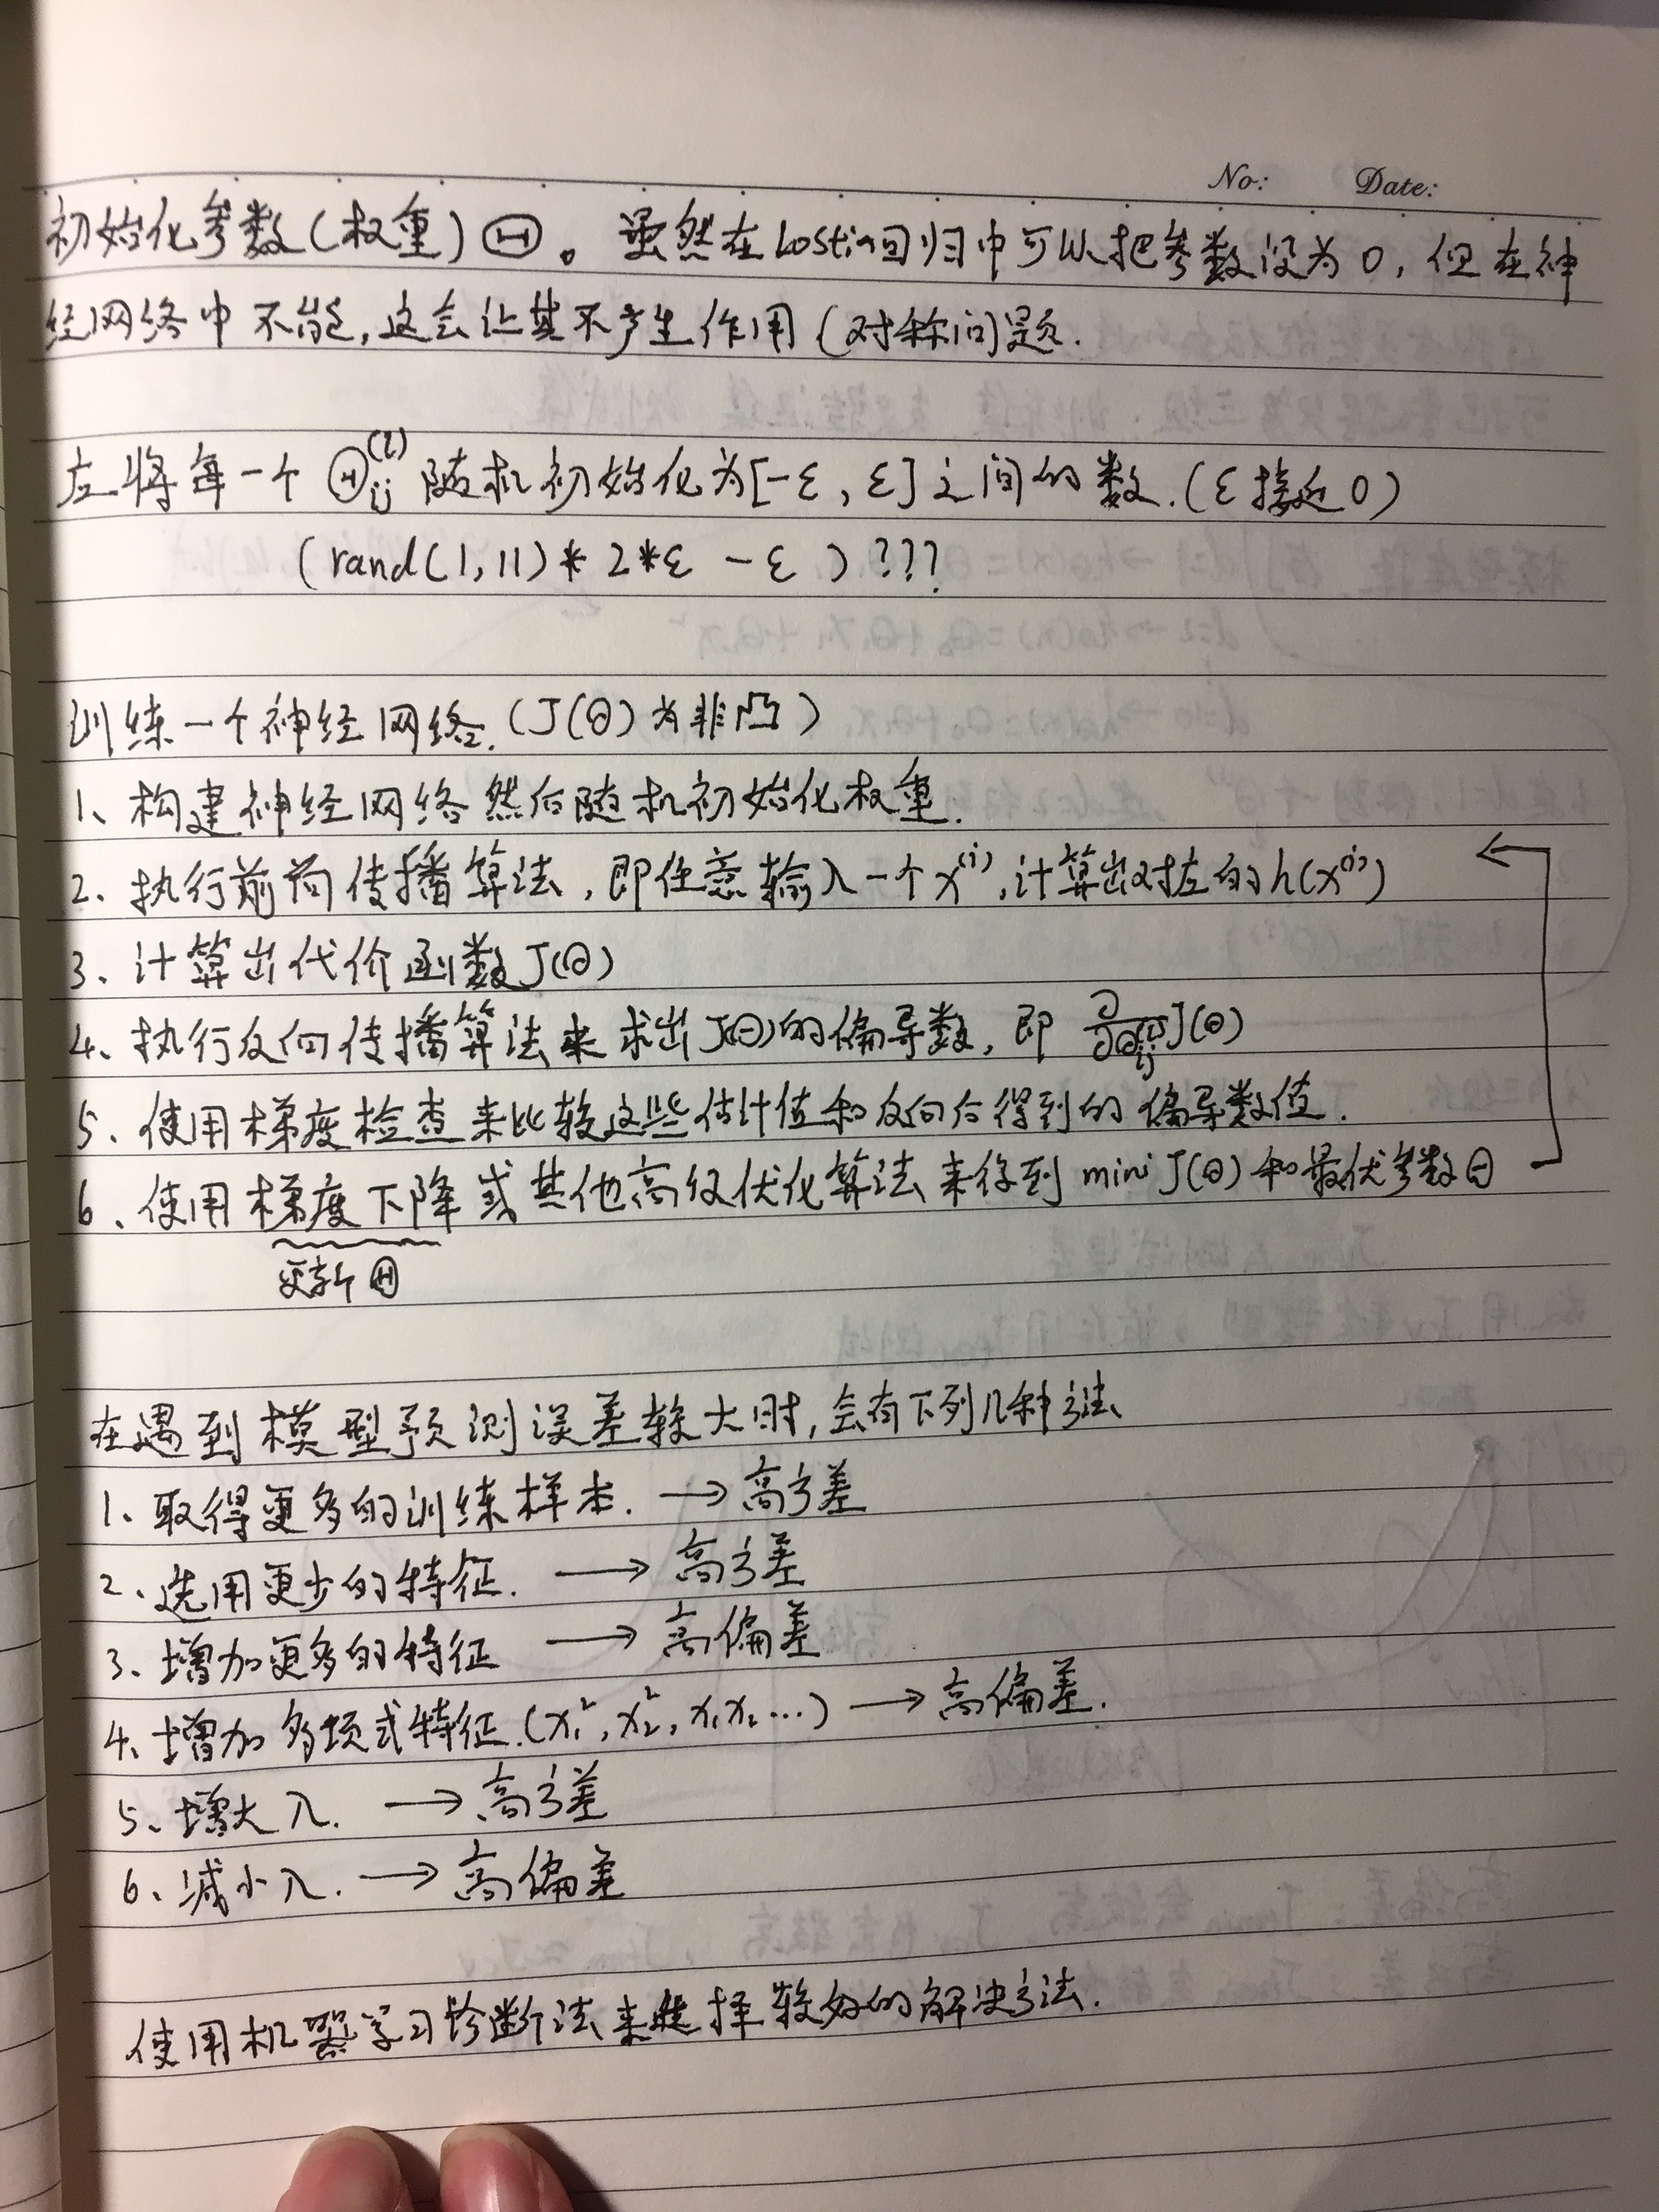 No: Date:
初始化参数(权重) Θ。虽然在Lostin回归中可以把参数设为0, 但在神
经网络中不能, 这会让其不产生作用 (对称问题.
应将每一个 Θij(l) 随机初始化为[-ε, ε]之间的数. (ε接近0)
(rand(1,11)*2*ε -ε) ???
训练一个神经网络. (J(Θ)为非凸)
1、构建神经网络然后随机初始化权重.
2、执行前向传播算法, 即任意输入一个x(i), 计算出对应的h(x(i))
3、计算出代价函数J(Θ)
4、执行反向传播算法来求出J(Θ)的偏导数, 即 ∂/∂Θij(l) J(Θ)
5、使用梯度检查来比较这些估计值和反向后得到的偏导数值.
6、使用梯度下降或其他高级优化算法来得到 min J(Θ)和最优参数Θ
更新Θ
在遇到模型预测误差较大时, 会有下列几种方法
1、取得更多的训练样本. → 高方差
2、选用更少的特征. → 高方差
3、增加更多的特征 → 高偏差
4、增加多项式特征. (x₁², x₂², x₁x₂ ...) → 高偏差.
5、增大λ. → 高方差
6、减小λ. → 高偏差
使用机器学习诊断法来选择较好的解决方法.